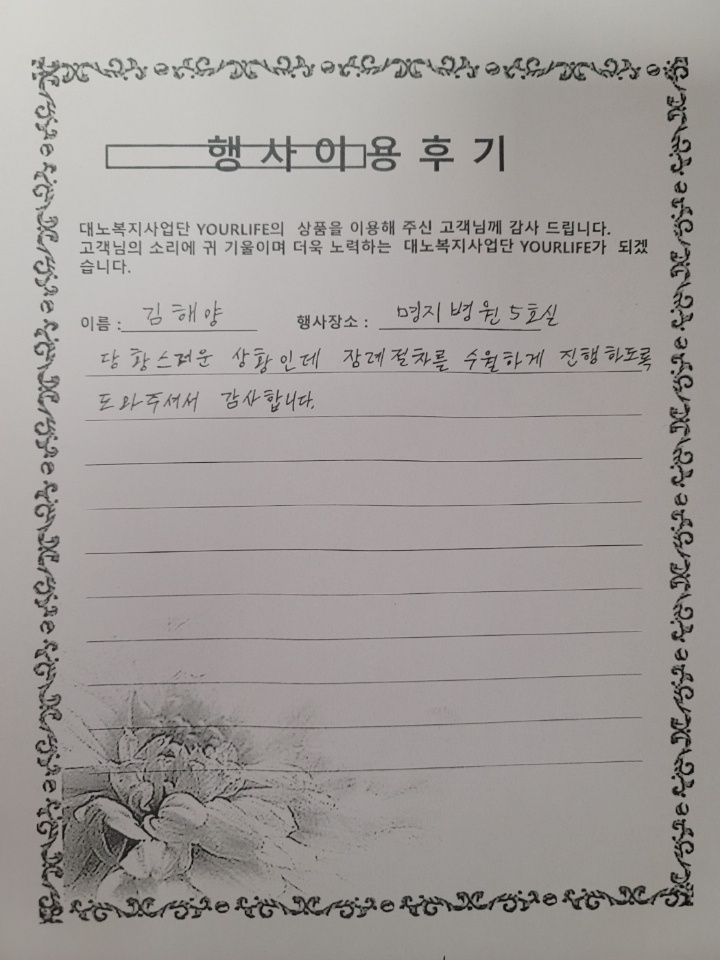 행사이용후기
대노복지사업단 YOURLIFE의 상품을 이용해 주신 고객님께 감사 드립니다.
고객님의 소리에 귀 기울이며 더욱 노력하는 대노복지사업단 YOURLIFE가 되겠
습니다.
이름 : 김해양 행사장소 : 명지병원 5호실
당황스러운 상황인데 장례절차를 수월하게 진행하도록
도와주셔서 감사합니다.